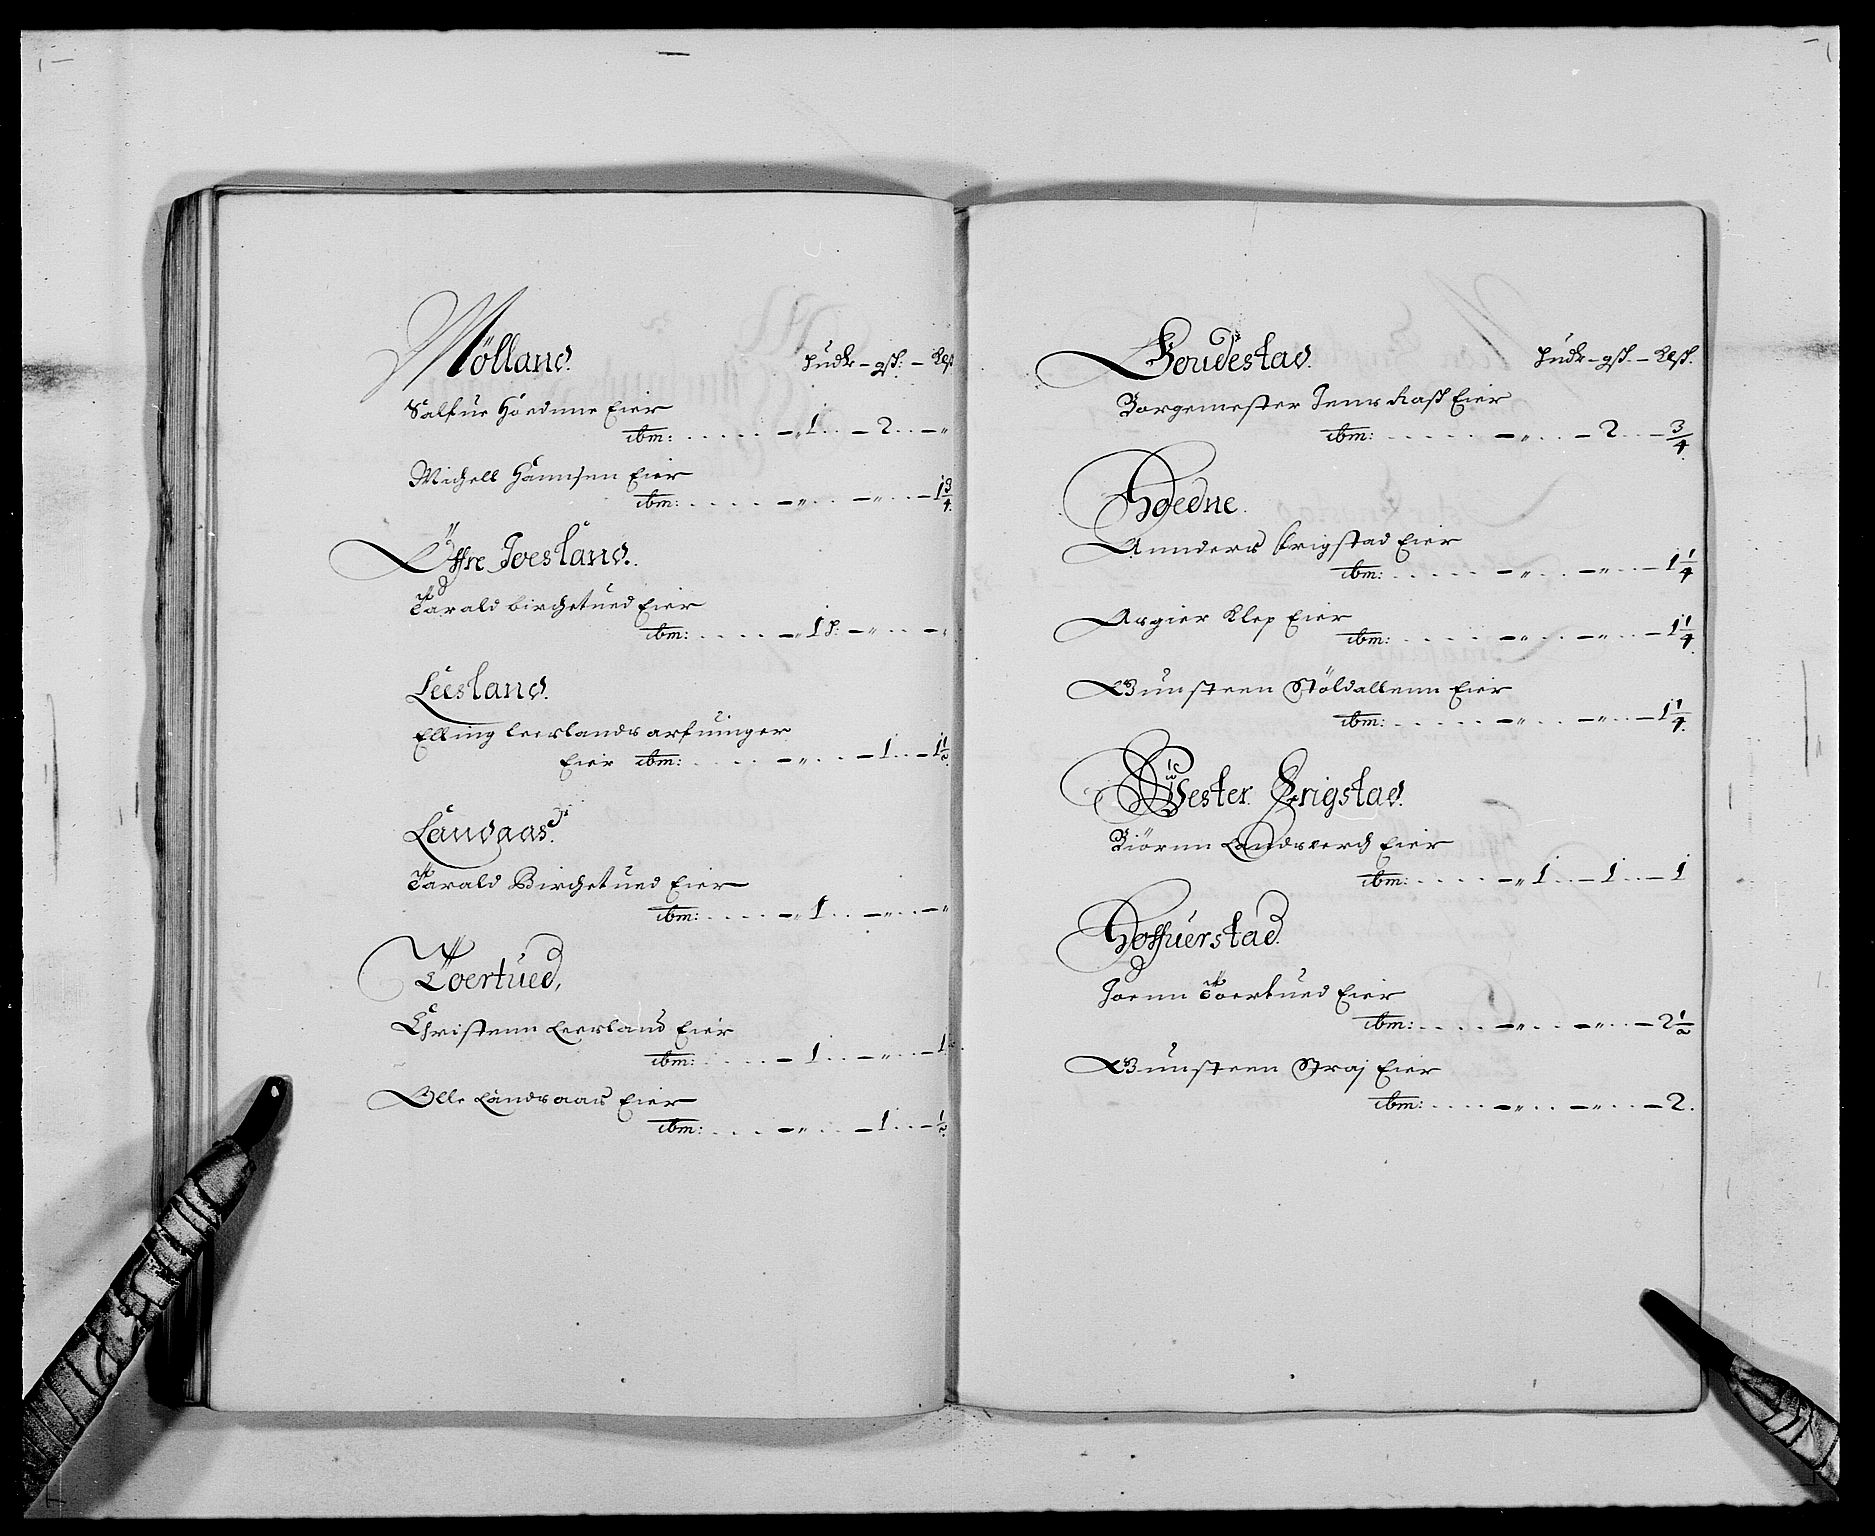 Mölland. hudr – qß: – Kß
Salfue Höednne Eier
ibm: . . . . . – „ 1 . . – 2 . . – „
Michell Hannsen Eier
ibm: . . . . – „ . . . – „ . . . – 1 3/4
Öffre Joesland.
Tarald birchetued Eier
ibm: . . . . – „ 1ß: – „ . . . – „
Leesland.
Elling leeslands arfuinger
Eier ibm: . . . . – „ . . . – 1 . . – 1 1/2
Landaas.
Tarald Birchetued Eier
ibm: . . . . – „ 1 . . – „ . . . – „
Toertued,
Christenn Leesland Eier
ibm: . . . . – 1 . . – „ . . . – 1
Olle Landaas Eier
ibm: . . . . – „ . . . – 1 . . – 1/2
Goudestad. hudr – qß. – Kß.
Borgemester Jens Rasß Eier
ibm: . . . . . – „ . . . – 2 . . – 3/4
Hoedne.
Annders Erigstad Eier
ibm: . . . . . – „ . . . – „ . . . – 1 1/4
Asgier Klep Eier
ibm: . . . . . – „ . . . – „ . . . – 1 1/4
Gunsteen Stöldallenn Eier
ibm: . . . . . – „ . . . – „ . . . – 1 1/4
Wester Erigstad.
Biörnn Landsverch Eier
ibm: . . . . – „ 1 . . – 1 . . – 1
Hoffuerstad.
Joenn Toertued Eier
ibm: . . . . – „ . . . – „ . . . – 2 1/2
Gunsteen Straj Eier
ibm: . . . . – „ . . – „ . . . – 2.